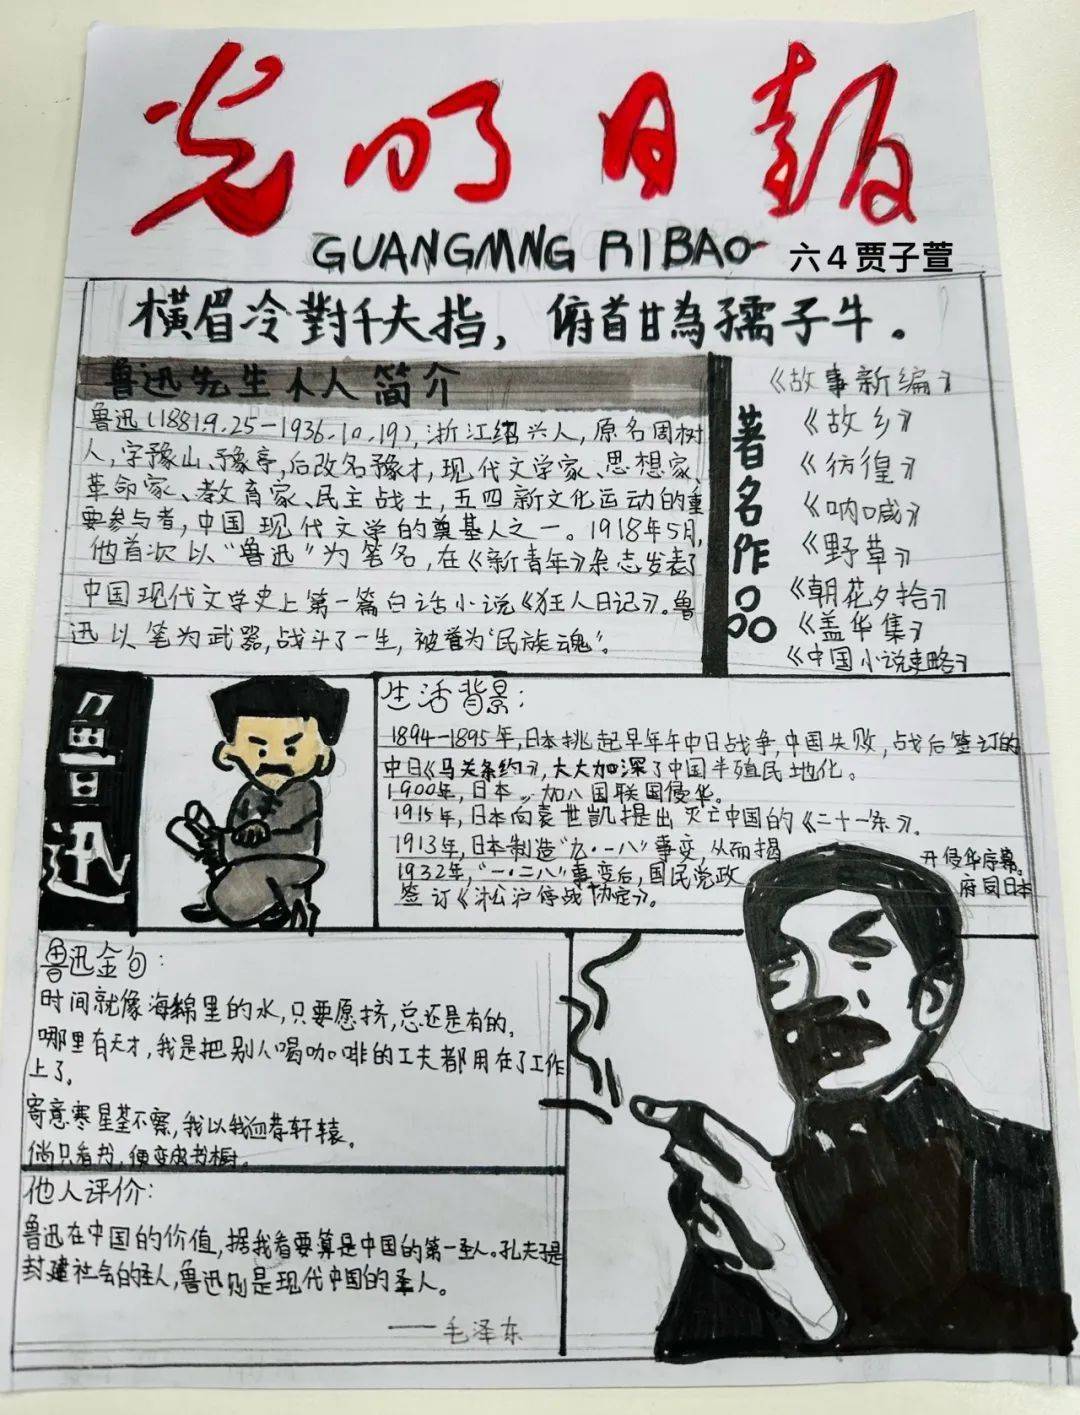 光明日報
GUANGMNG RIBAO
六4贾子萱
横眉冷對千夫指，俯首甘為孺子牛。
鲁迅先生个人简介
鲁迅(1881.9.25-1936.10.19)，浙江绍兴人，原名周树
人，字豫山、豫亭，后改名豫才，现代文学家、思想家、
革命家、教育家、民主战士，五四新文化运动的重
要参与者，中国现代文学的奠基人之一。1918年5月，
他首次以“鲁迅”为笔名，在《新青年》杂志发表了
中国现代文学史上第一篇白话小说《狂人日记》。鲁
迅以笔为武器，战斗了一生，被誉为“民族魂”。
著名作品
《故事新编》
《故乡》
《彷徨》
《呐喊》
《野草》
《朝花夕拾》
《盖华集》
《中国小说史略》
鲁迅
生活背景：
1894-1895年，日本挑起早年午中日战争，中国失败，战后签订的
中日《马关条约》，大大加深了中国半殖民地化。
1900年，日本 加八国联国侵华。
1915年，日本向袁世凯提出灭亡中国的《二十一条》。
1913年，日本制造“九·一八”事变，从而揭
开侵华序幕。
1932年，“一·二八”事变后，国民党政
府同日本
签订《淞沪停战协定》。
鲁迅金句：
时间就像海绵里的水，只要愿挤，总还是有的。
哪里有天才，我是把别人喝咖啡的工夫都用在了工作
上了。
寄意寒星荃不察，我以我血荐轩辕。
倘只看书，便变成书橱。
他人评价：
鲁迅在中国的价值，据我看要算是中国的第一圣人。孔夫子是
封建社会的圣人，鲁迅则是现代中国的圣人。
——毛泽东